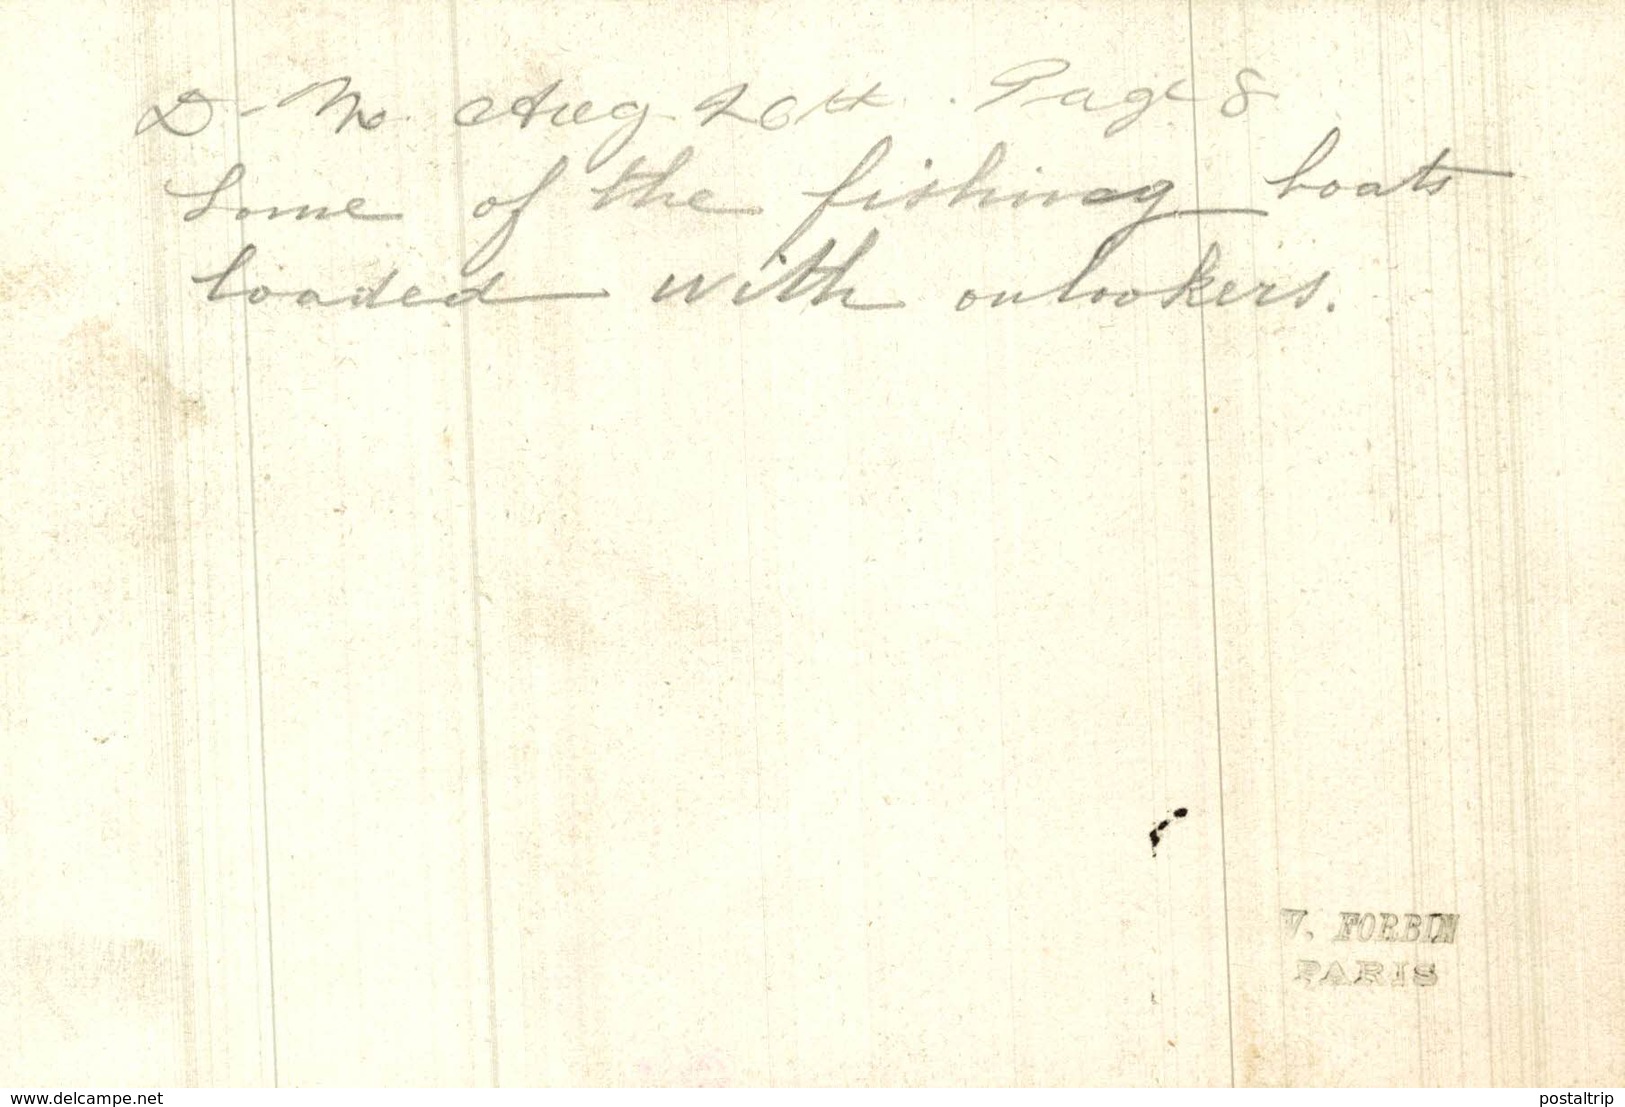 D - M. Aug 26th. Page 8
Some of the fishing boats
loaded with onlookers.
V. FORBIN
PARIS
www.delcampe.net
postaltrip